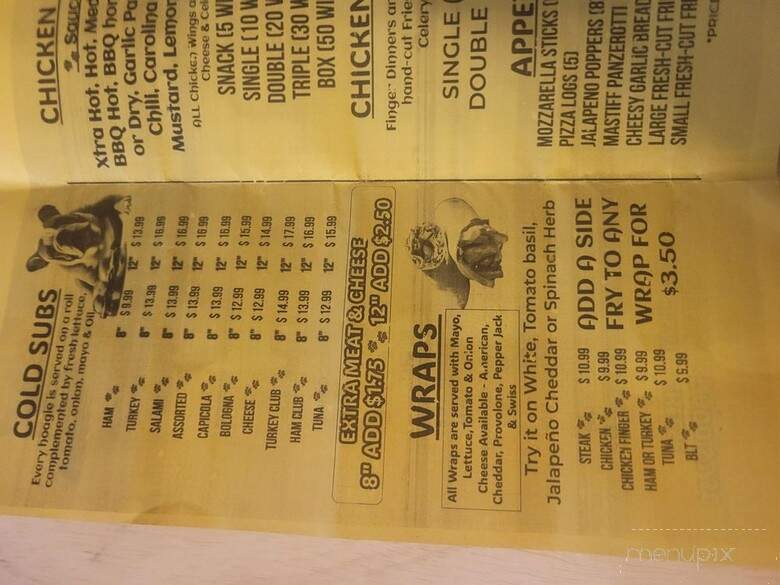 COLD SUBS
Every hoagie is served on a roll
complemented by fresh lettuce,
tomato, onion, mayo & Oil
HAM 8" $ 9.99 12" $ 13.99
TURKEY 8" $ 13.99 12" $ 16.99
SALAMI 8" $ 13.99 12" $ 16.99
ASSORTED 8" $ 13.99 12" $ 16.99
CAPICOLA 8" $ 13.99 12" $ 16.99
BOLOGNA 8" $ 12.99 12" $ 15.99
CHEESE 8" $ 12.99 12" $ 14.99
TURKEY CLUB 8" $ 14.99 12" $ 17.99
HAM CLUB 8" $ 13.99 12" $ 16.99
TUNA 8" $ 12.99 12" $ 15.99
EXTRA MEAT & CHEESE
8" ADD $1.75 12" ADD $2.50
WRAPS
All Wraps are served with Mayo,
Lettuce, Tomato & Onion
Cheese Available - American,
Cheddar, Provolone, Pepper Jack
& Swiss
Try it on White, Tomato basil,
Jalapeño Cheddar or Spinach Herb
STEAK $ 10.99
CHICKEN $ 9.99
CHICKEN FINGER $ 10.99
HAM OR TURKEY $ 9.99
TUNA $ 10.99
BLT $ 9.99
ADD A SIDE
FRY TO ANY
WRAP FOR
$3.50
CHICKEN
Xtra Hot, Hot,
BBQ Hot, BBQ
or Dry, Garlic
Chili, Carolina
Mustard,
ALL Chicken Wings
Cheese &
SNACK (5
SINGLE (10
DOUBLE (20
TRIPLE (30
BOX (50
CHICKEN
Finger Dinners
hand-cut
Celery
SINGLE
DOUBLE
MOZZARELLA STICKS
PIZZA LOGS (5)
JALAPENO POPPERS
MASTIFF PANZEROTTI
CHEESY GARLIC
LARGE FRESH-CUT
SMALL FRESH-CUT
menupix